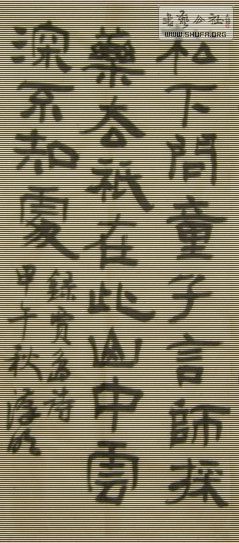 松下問童子言師採
藥去祇在此山中雲
深不知處
錄賈島詩
甲午秋
WWW.SHUFA.ORG